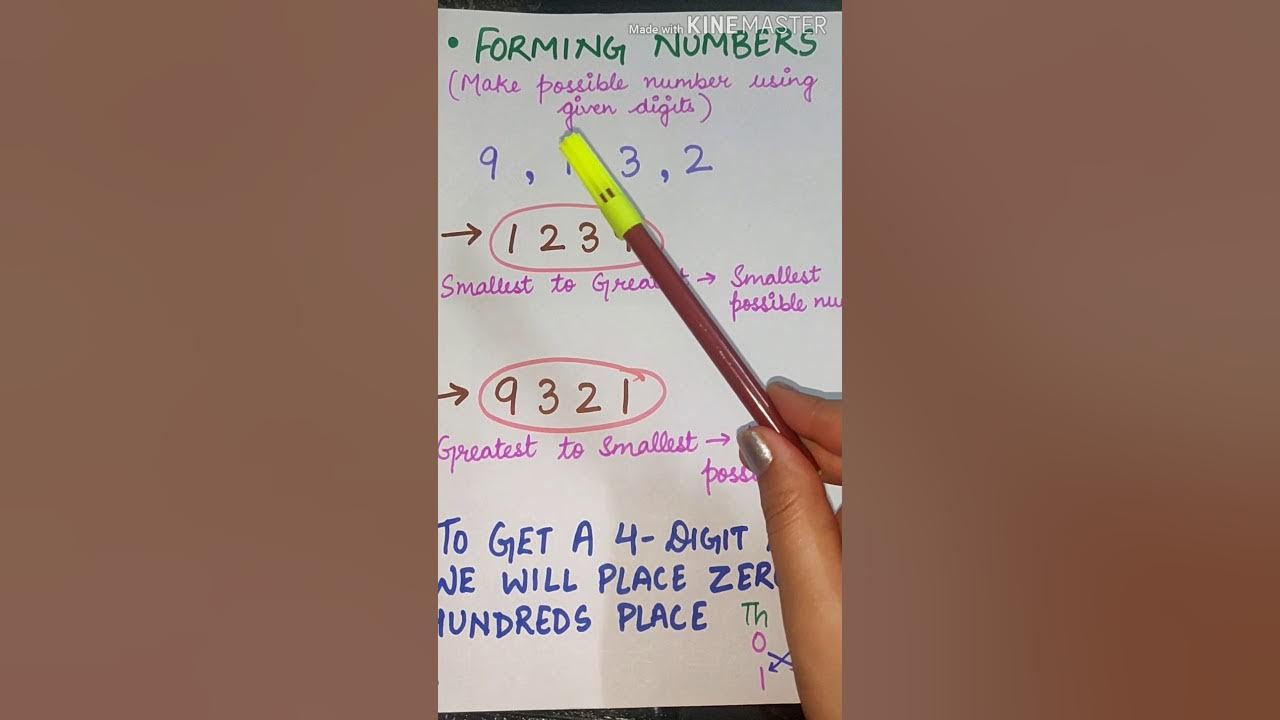 Made with KINEMASTER
• FORMING NUMBERS
(Make possible number using
given digits)
9 , 3 , 2
→ 1 2 3
Smallest to → Smallest
possible
→ 9 3 2 1
Greatest to Smallest →
TO GET A 4-DIGIT
WE WILL PLACE
HUNDREDS PLACE Th
0
1